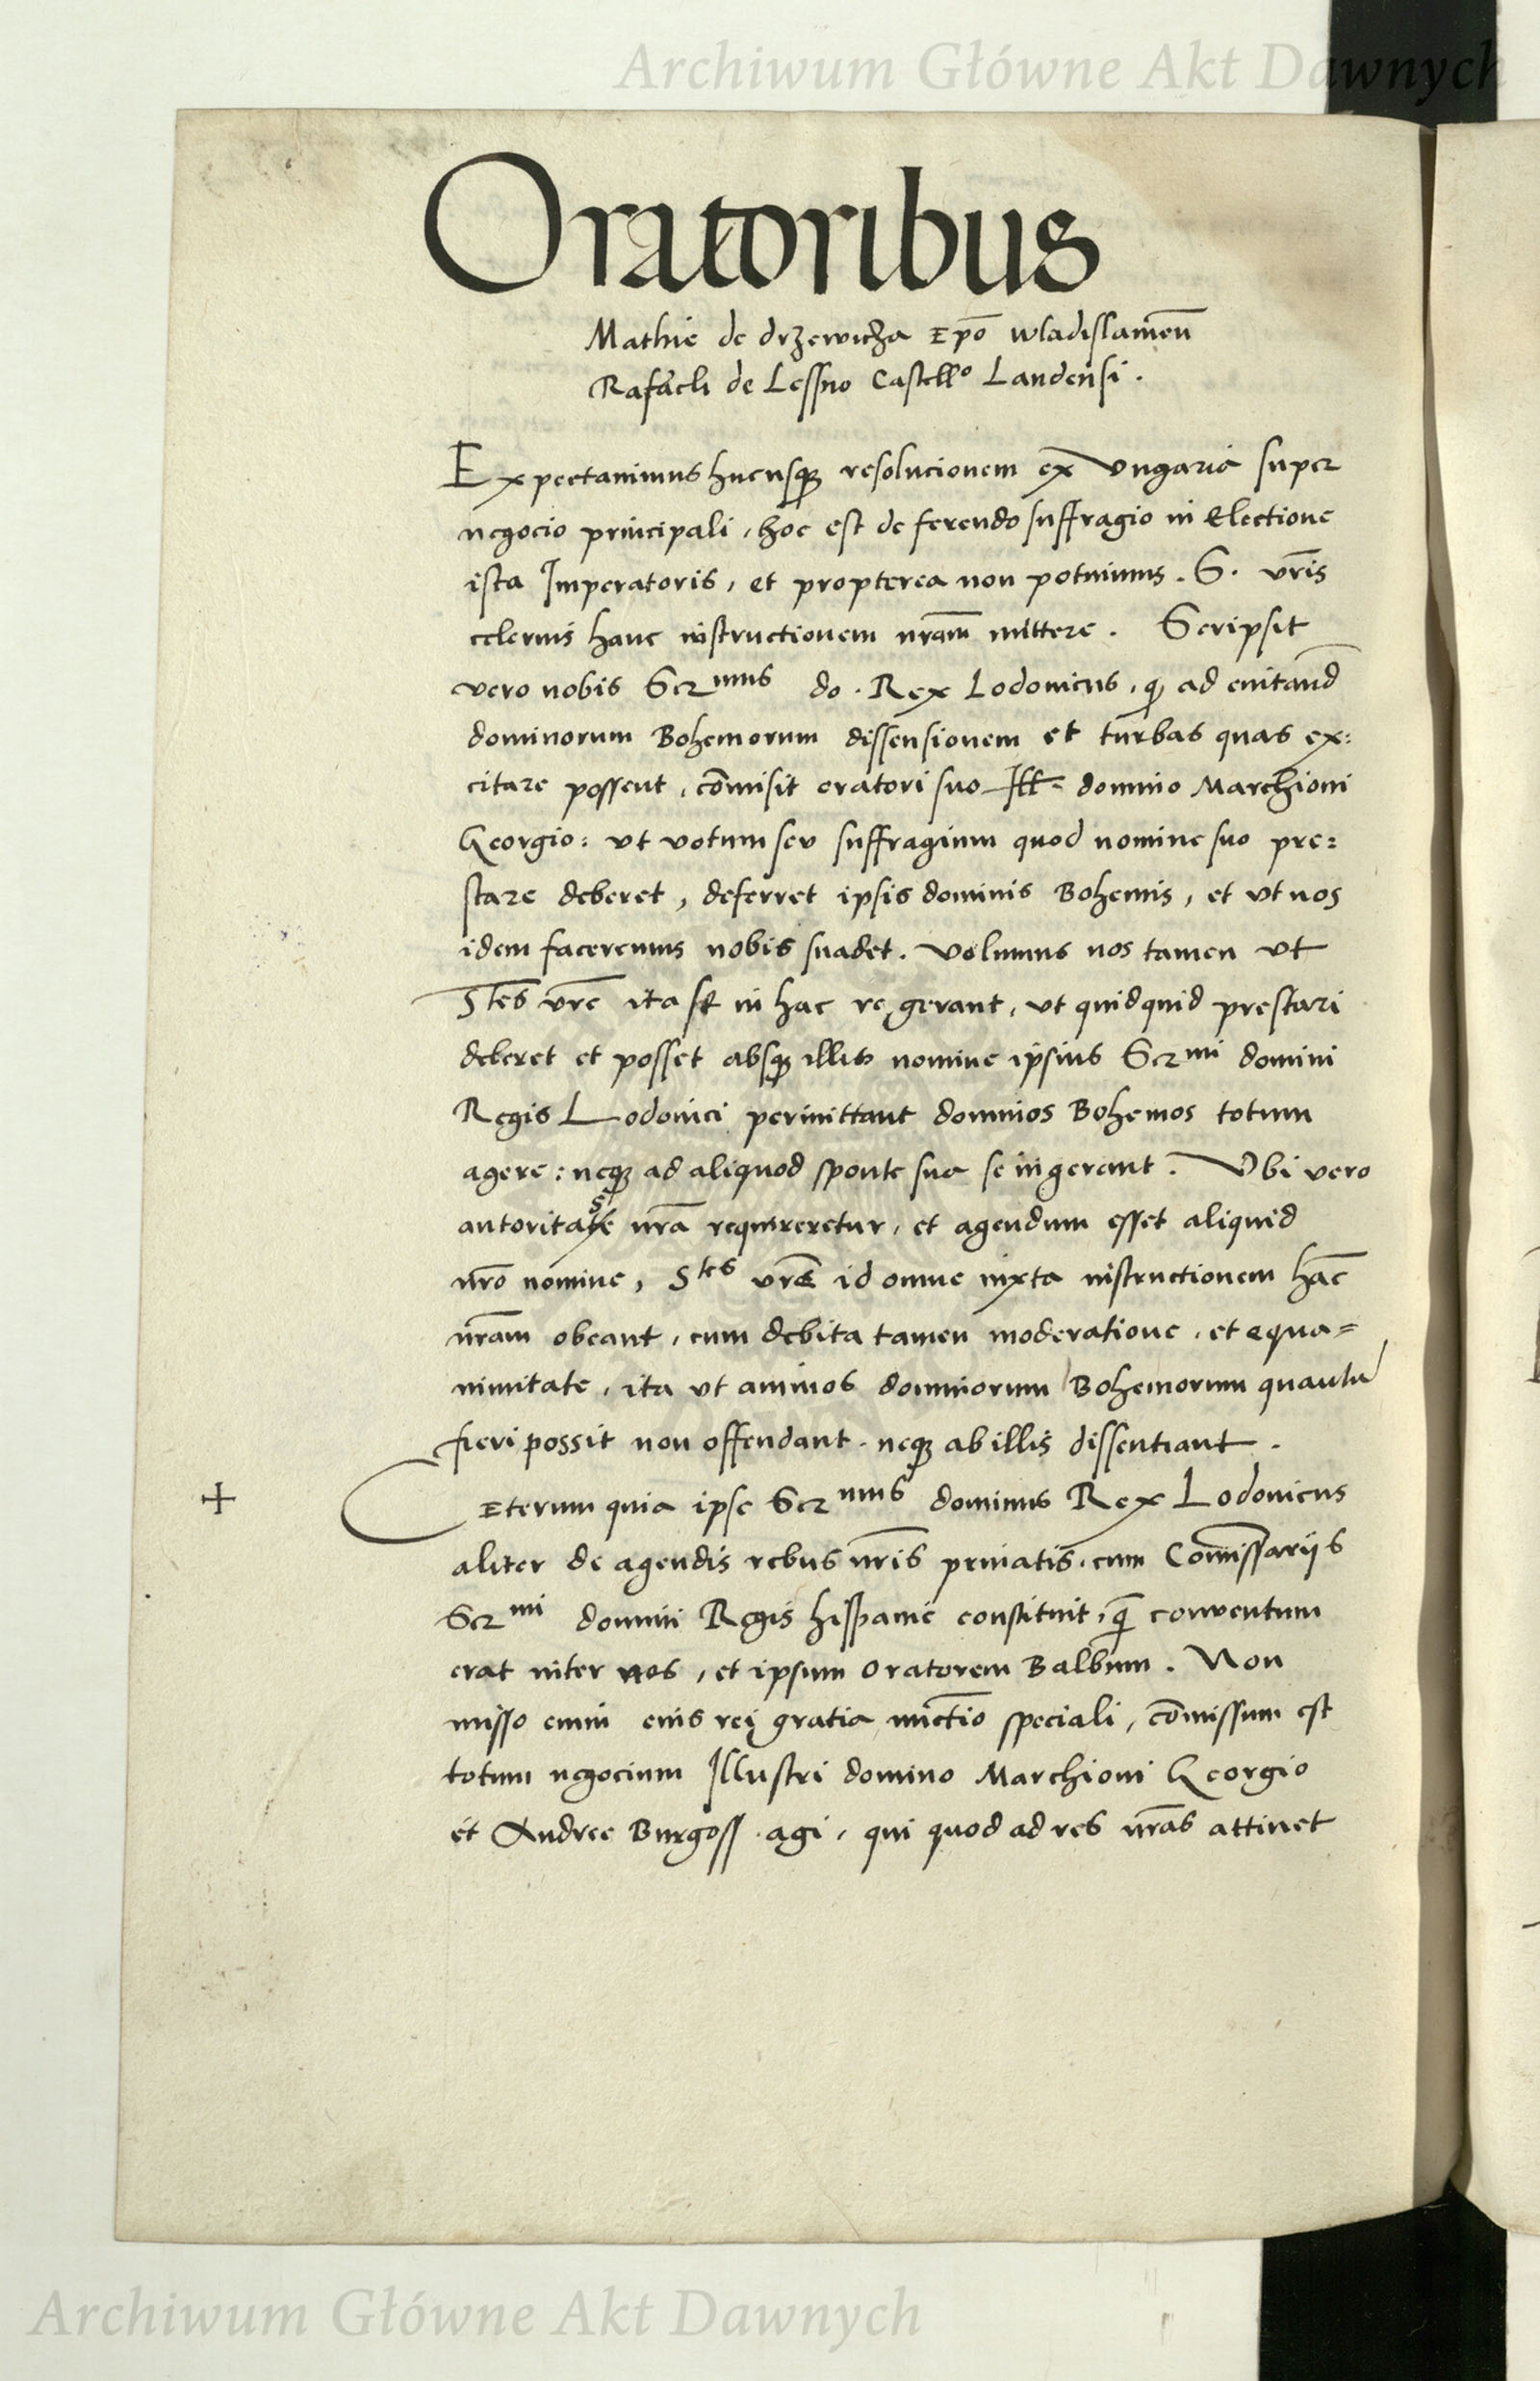 Archiwum Główne Akt Dawnych
Oratoribus
Mathie de drzewicza Epō wladislauieñ
Rafaeli de Lessno Castellº Landensi.
Expectauimus hucusqꝫ resolucionem ex Vngaria super
negocio principali, hoc est de ferendo suffragio in Electione
ista Imperatoris, et propterea non potuimus. S. vr̄is
celerius hanc instructionem nr̄am mittere. Scripsit
vero nobis Ser^mus do. Rex Lodouicus, ꝙ ad euitand̄
dominorum Bohemorum dissensionem et turbas quas ex:
citare possent, cōmisit oratori suo Ill. domino Marchioni
Georgio: vt votum seu suffragium quod nomine suo pre:
stare deberet, deferret ipsis dominis Bohemis, et vt nos
idem faceremus nobis suadet. Volumus nos tamen vt
S^tes vr̄e ita se in hac re gerant, vt quidquid prestari
deberet et posset absqꝫ illis nomine ipsius Ser^mi domini
Regis Lodouici permittant dominos Bohemos totum
agere: neqꝫ ad aliquod sponte sua se ingerant. Vbi vero
autoritas nr̄a requireretur, et agendum esset aliquid
nr̄o nomine, S^tes vr̄e id omne iuxta instructionem hāc
nr̄am obeant, cum debita tamen moderatione, et equa=
nimitate, ita vt animos dominorum Bohemorum quantū
fieri possit non offendant. neqꝫ ab illis dissentiant.
+ CEterum quia ipse Ser^mus dominus Rex Lodouicus
aliter de agendis rebus nr̄is priuatis, cum Com̄issarijs
Ser^mi domini Regis hispanie constituit, q̄ conventum
erat inter nos, et ipsum Oratorem Balbum. Non
misso enim eius rei gratia nūctio speciali, cōmissum est
totum negocium Illustri domino Marchioni Georgio
et Andree Burgoss. agi, qui quod ad res nr̄as attinet
Archiwum Główne Akt Dawnych